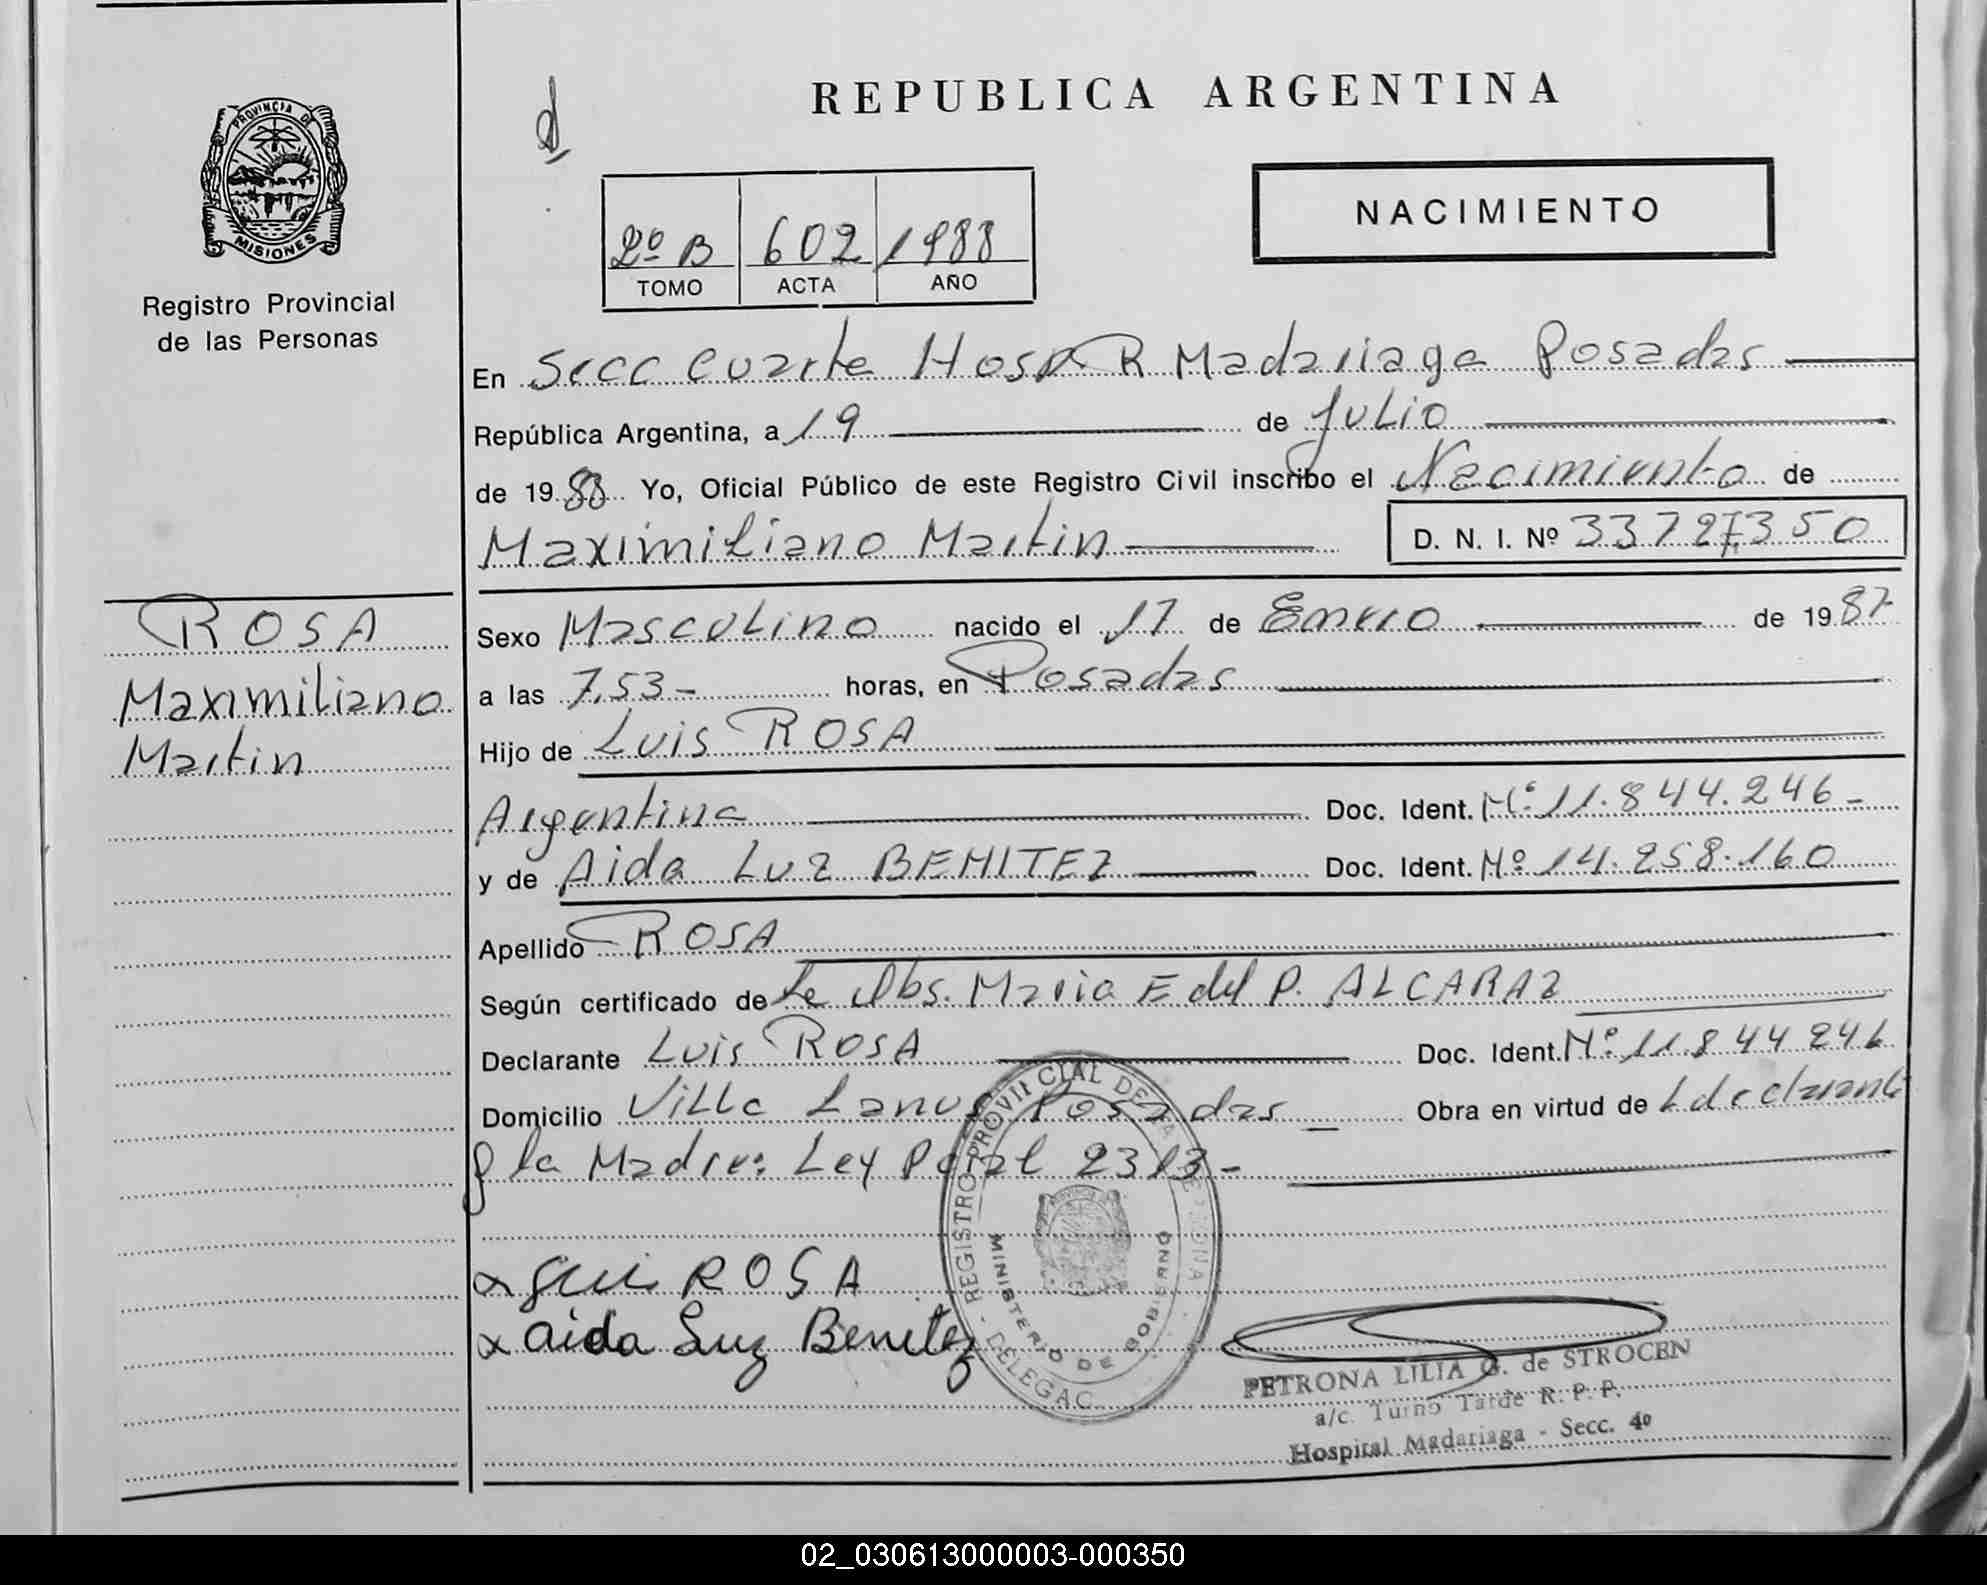 REPUBLICA ARGENTINA
PROVINCIA DE
MISIONES
Registro Provincial
de las Personas
2º B 602 1988
TOMO ACTA AÑO
NACIMIENTO
En Secc Cuarta Hosp R Madariaga Posadas
República Argentina, a 19 de Julio
de 1988 Yo, Oficial Público de este Registro Civil inscribo el Nacimiento de
Maximiliano Martin D. N. I. Nº 33727350
ROSA
Maximiliano
Martin
Sexo Masculino nacido el 17 de Enero de 1987
a las 7,53- horas, en Posadas
Hijo de Luis ROSA
Argentina Doc. Ident. Nº 11.844.246-
y de Aida Luz BENITEZ Doc. Ident. Nº 14.258.160
Apellido ROSA
Según certificado de La Obs. Maria E del P. ALCARAZ
Declarante Luis ROSA Doc. Ident. Nº 11 844 246
Domicilio Villa Lanus Posadas Obra en virtud de
la Madre: Ley 2313-
x ROSA
x Aida Luz Benitez
REGISTRO PROVINCIAL DE LA
MINISTERIO DE GOBIERNO
DELEGAC
PETRONA LILIA G. de STROCEN
a/c. Turno Tarde R. P. P.
Hospital Madariaga - Secc. 4º
02_030613000003-000350